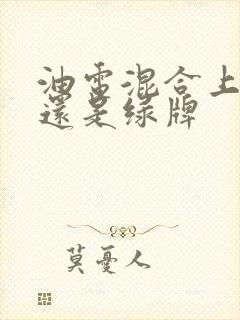 油電混合上
還是绿牌
莫憂人